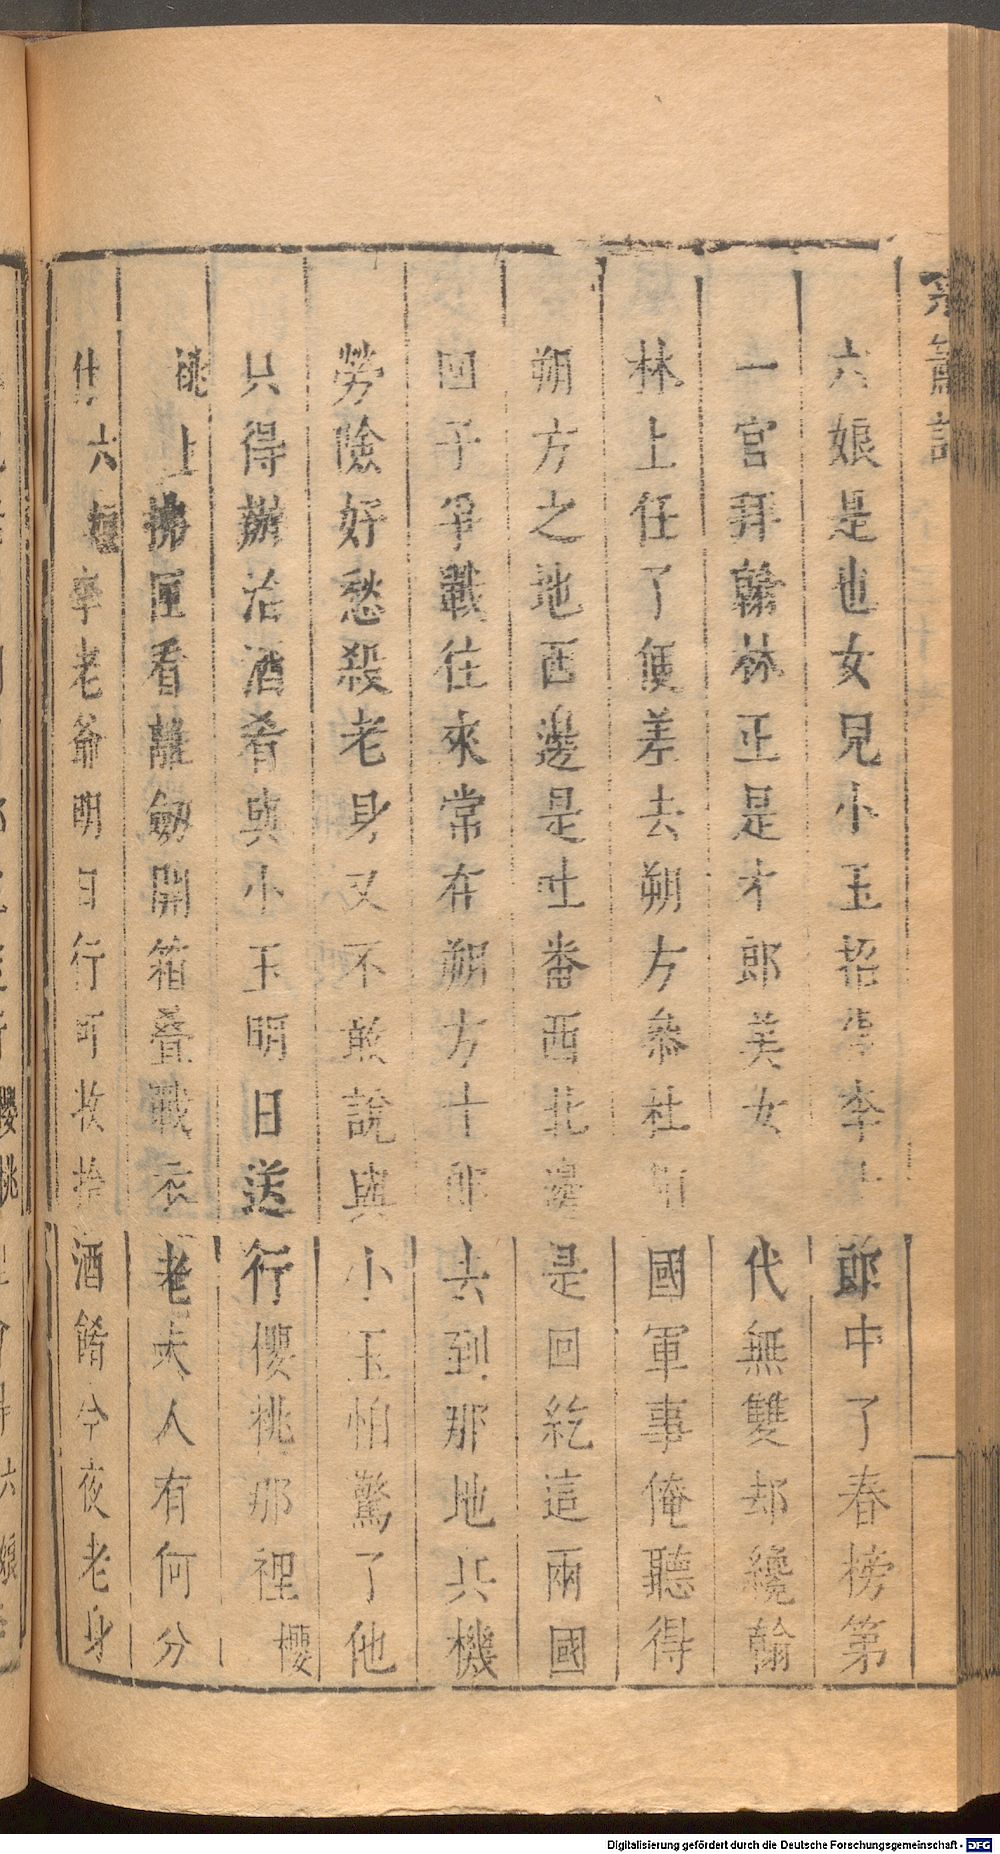 紫簫記
六娘是也女兒小玉招李十郎中了春榜第
一官拜翰林正是才郎美女 代無雙却纔翰
林上任了便差去朔方叅 國軍事俺聽得
朔方之地西邊是吐番西北邊是回紇這兩國
回子爭戰往來常在朔方十郎去到那地兵機
勞險好愁殺老身又不敢說與小玉怕驚了他
只得辦治酒肴與小玉明日送行櫻桃那裡櫻
桃上拂匣看離劒開箱疊戰衣老夫人有何分
付六娘李老爺明日行可收拾酒餚今夜老身
Digitalisierung gefördert durch die Deutsche Forschungsgemeinschaft - DFG